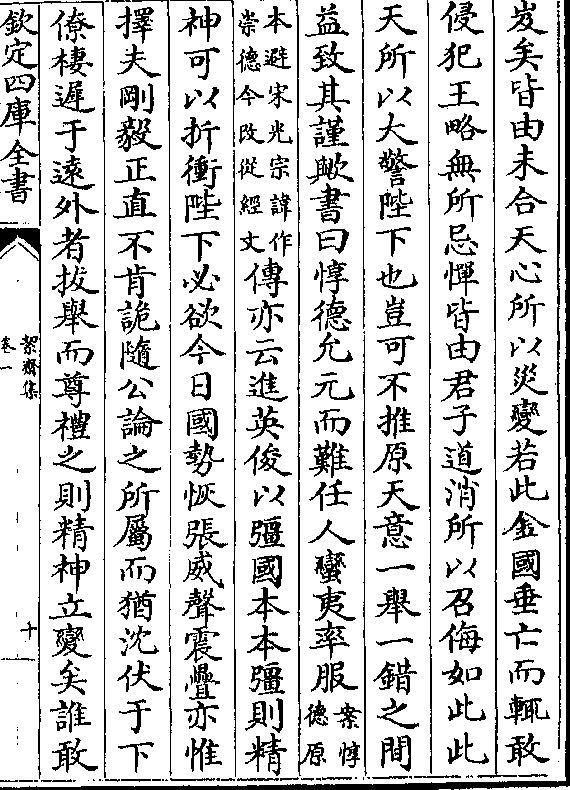 岌矣皆由未合天心所以災變若此金國垂亡而輒敢
侵犯王略無所忌憚皆由君子道消所以召侮如此此
天所以大警陛下也豈可不推原天意一舉一錯之間
益致其謹歟書曰惇德允元而難任人蠻夷率服案惇
德原
本避宋光宗諱作
崇德今改從經文
傳亦云進英俊以彊國本本彊則精
神可以折衝陛下必欲今日國勢恢張威聲震疊亦惟
擇夫剛毅正直不肯詭隨公論之所屬而猶沈伏于下
僚棲遲于遠外者拔舉而尊禮之則精神立變矣誰敢
欽定四庫全書
絜齋集
卷一
十